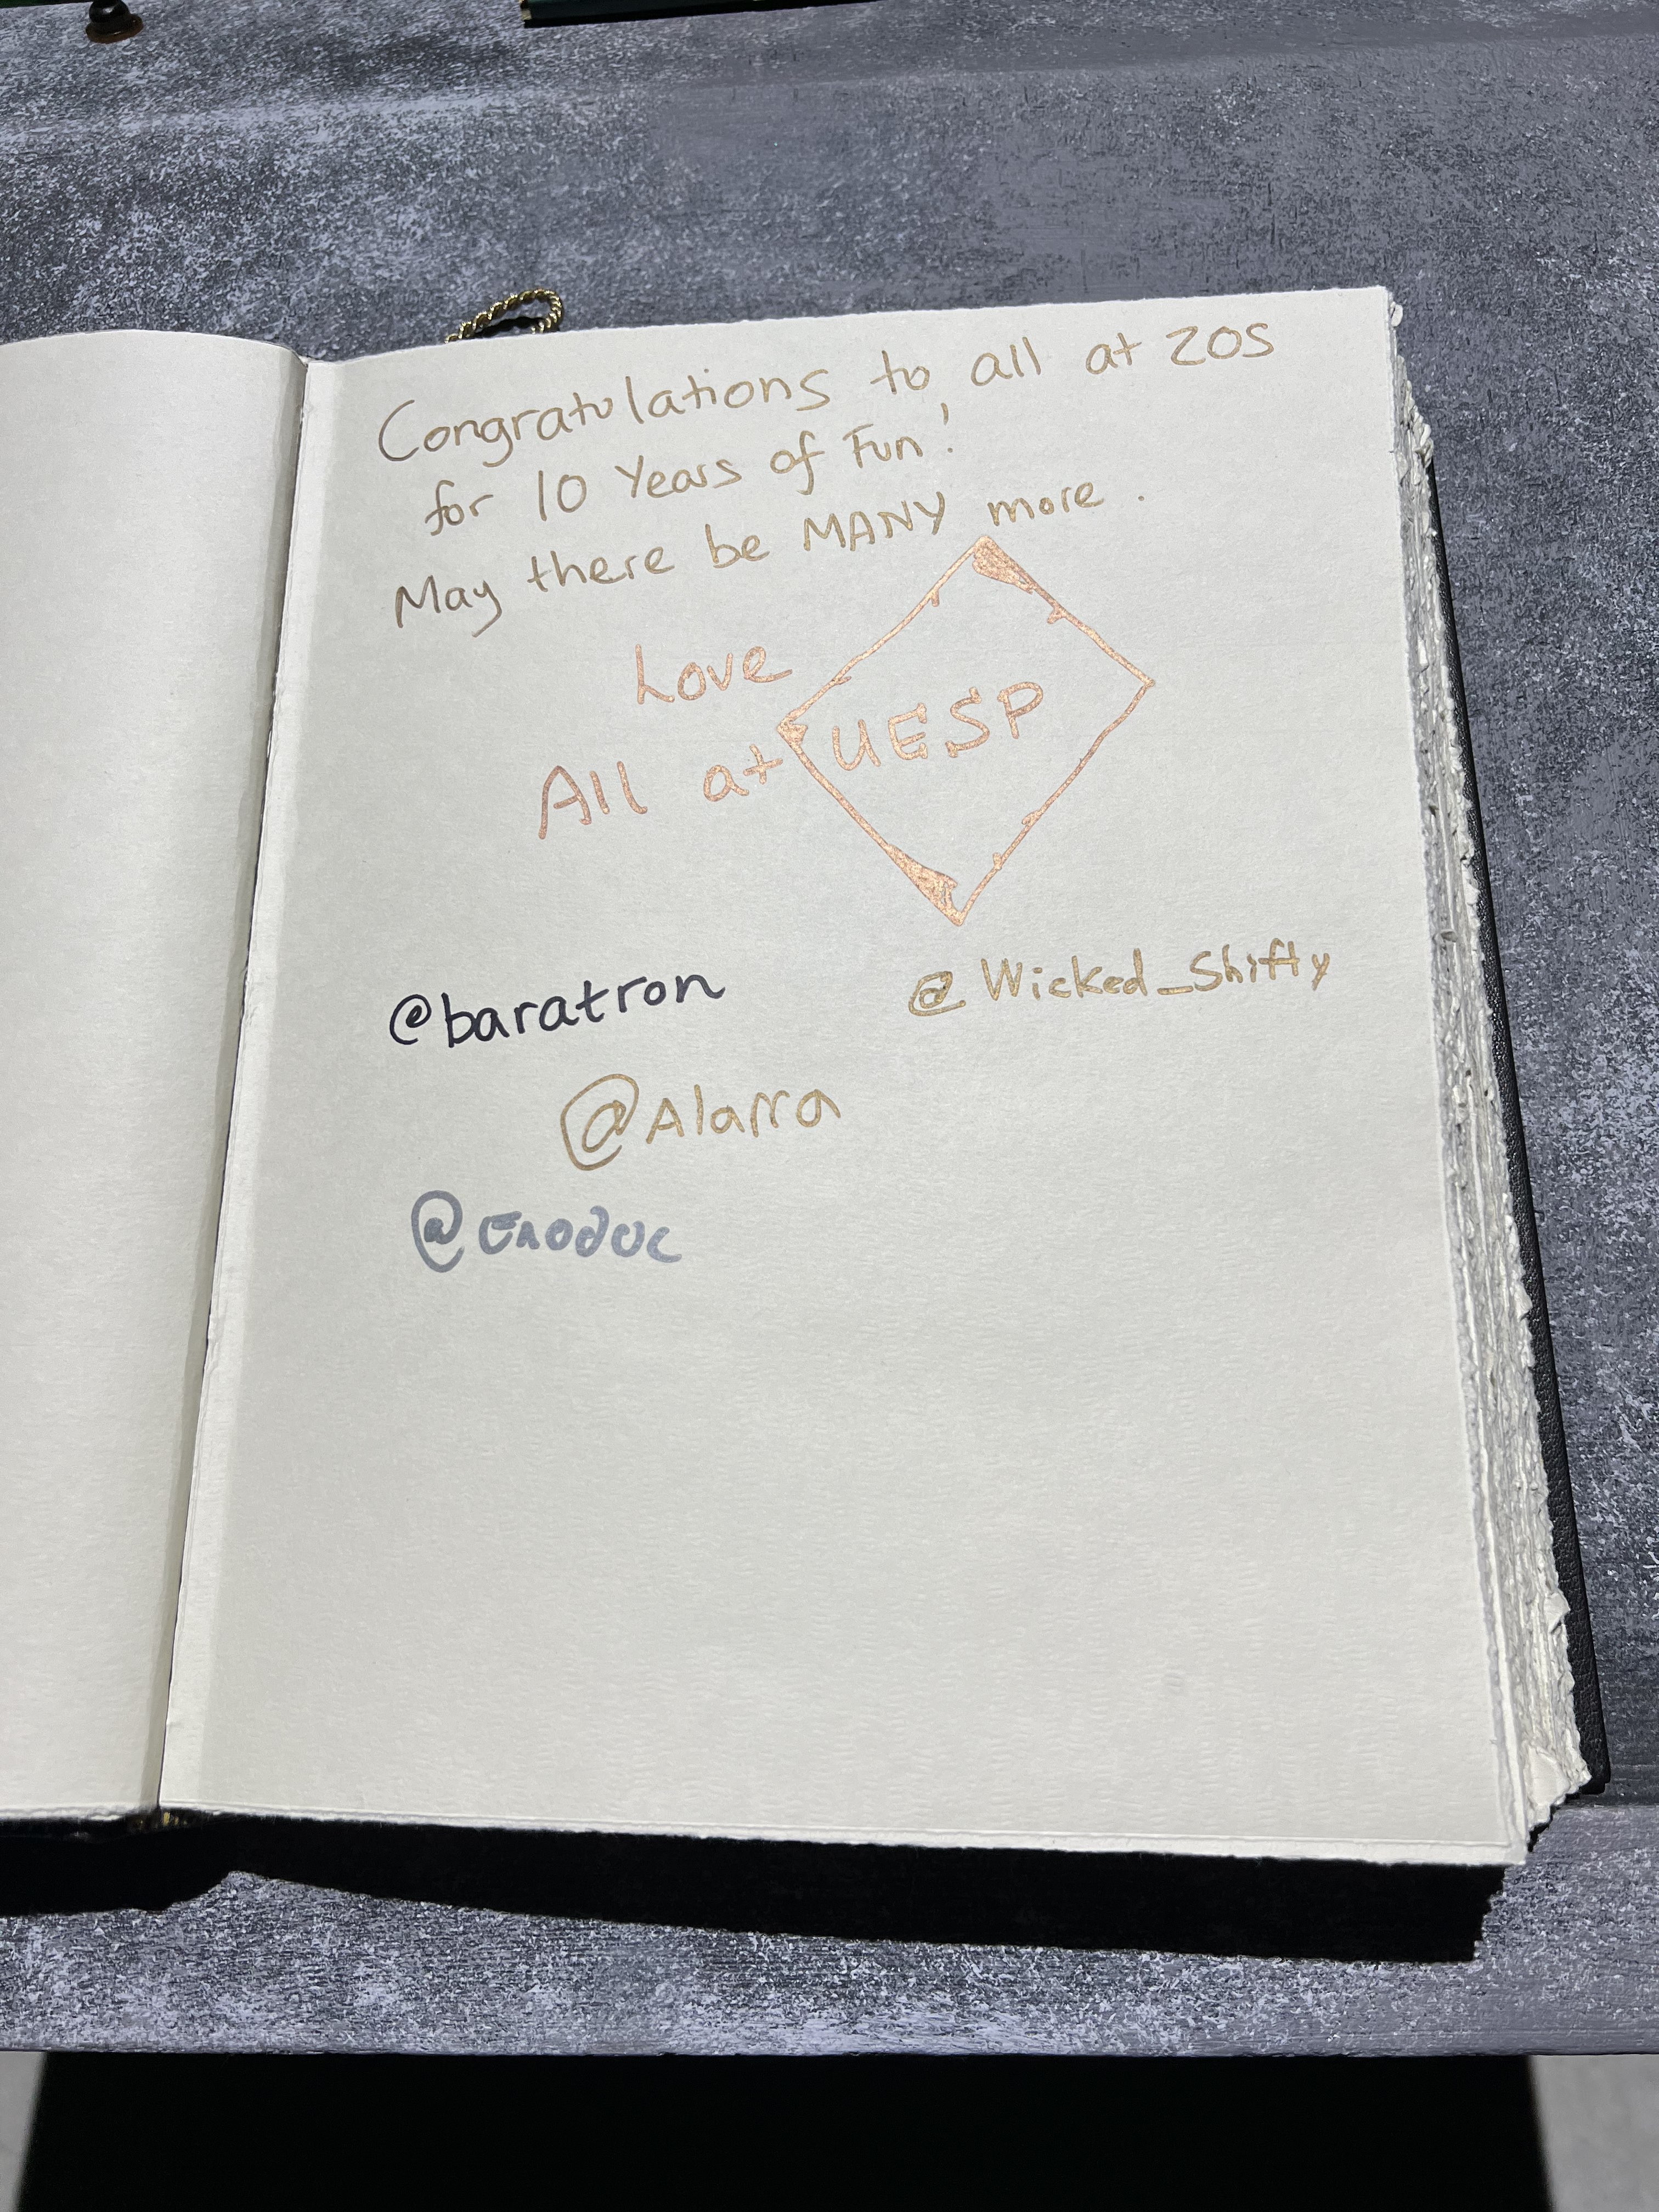 Congratulations to all at ZOS
for 10 Years of Fun!
May there be MANY more.
Love
All at UESP
@baratron
@Wicked_Shifty
@Alarra